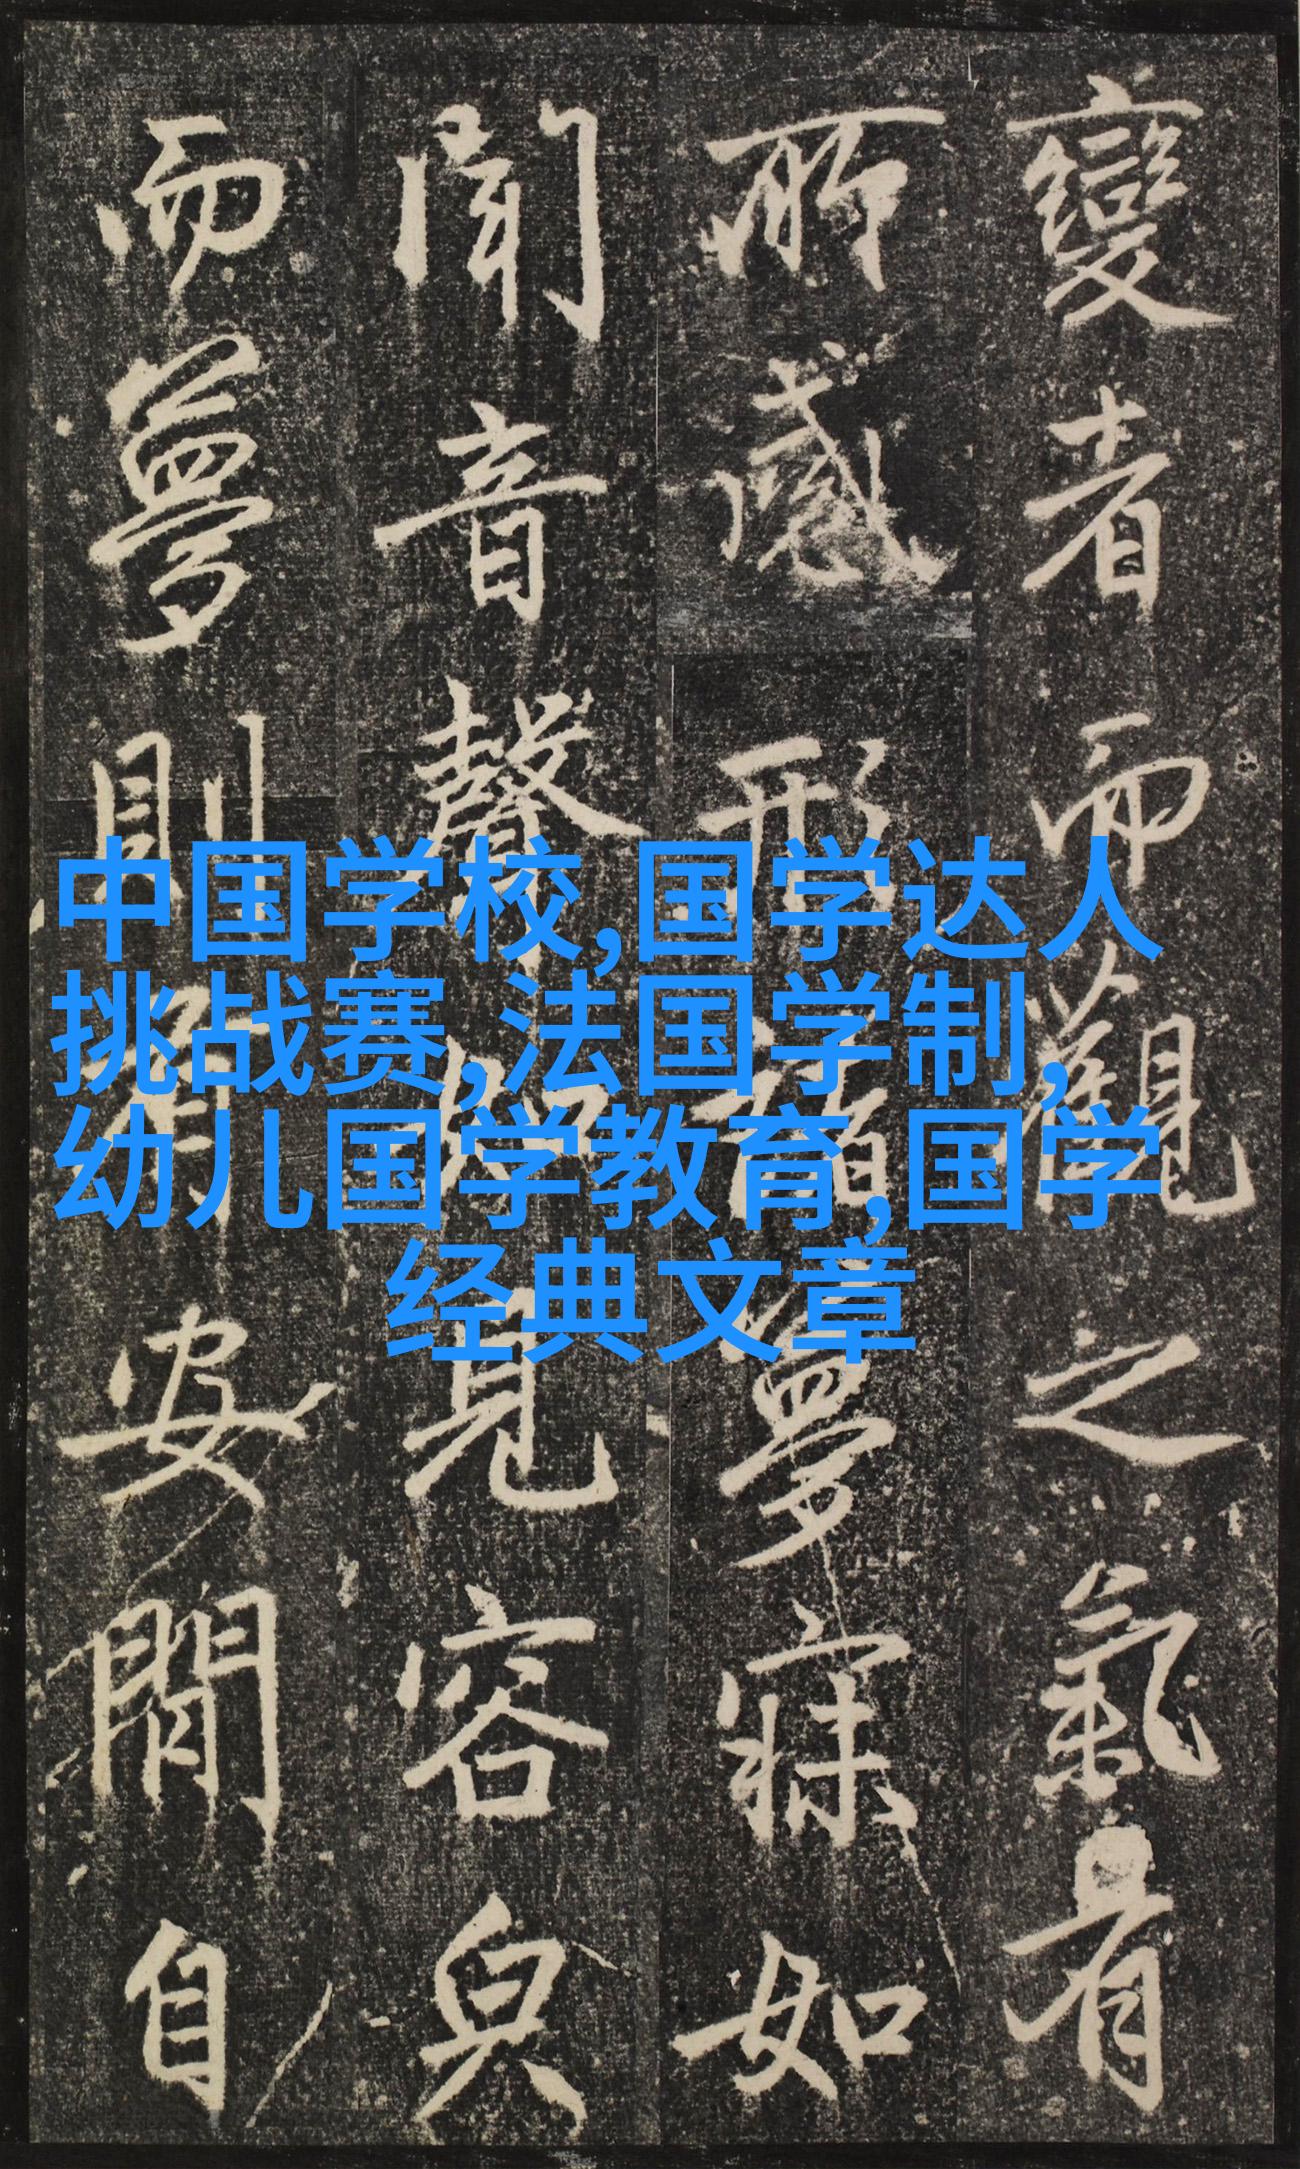 變者而觀之氣有
所感形諸夢寐如
聞音聲如見容皃
而夢則安閒自
中国学校,国学达人
挑战赛,法国学制,
幼儿国学教育,国学
经典文章